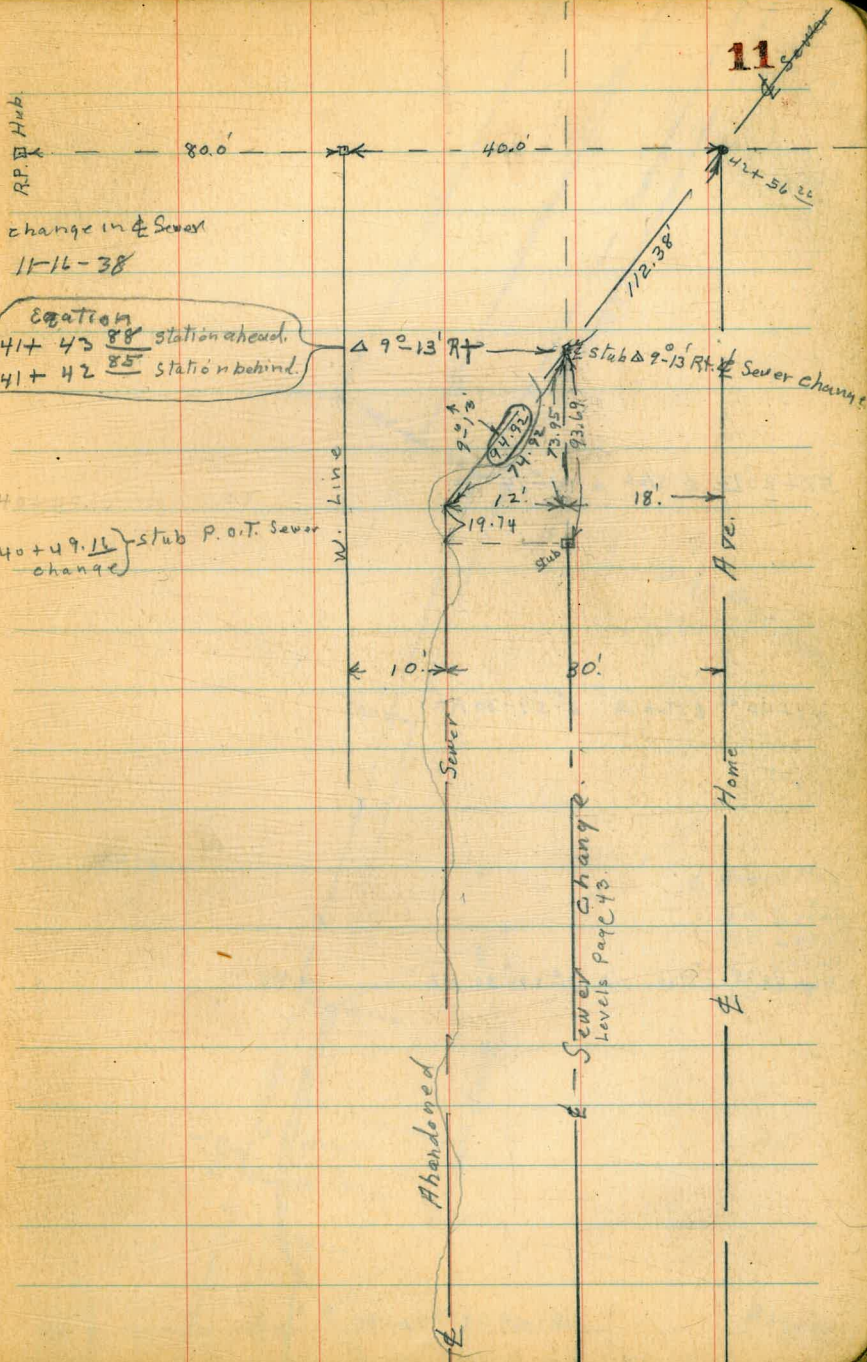 11
℄ Sewer
R.P. Hub.
80.0'
40.0'
42+56 22
change in ℄ Sewer
11-16-38
112.38'
Eqation
41+43 88 station ahead.
41+42 85 station behind.
Δ 9°-13' Rt
stub Δ 9°-13' Rt. ℄ Sewer change
9°-13'
94.92
74.92
73.95
93.69
12'
18'
19.74
stub
40+49.16 } stub P.O.T. Sewer
change
W. Line
10'
30'
℄ Abandoned Sewer
℄ Sewer change
Levels Page 43.
℄ Home Ave.